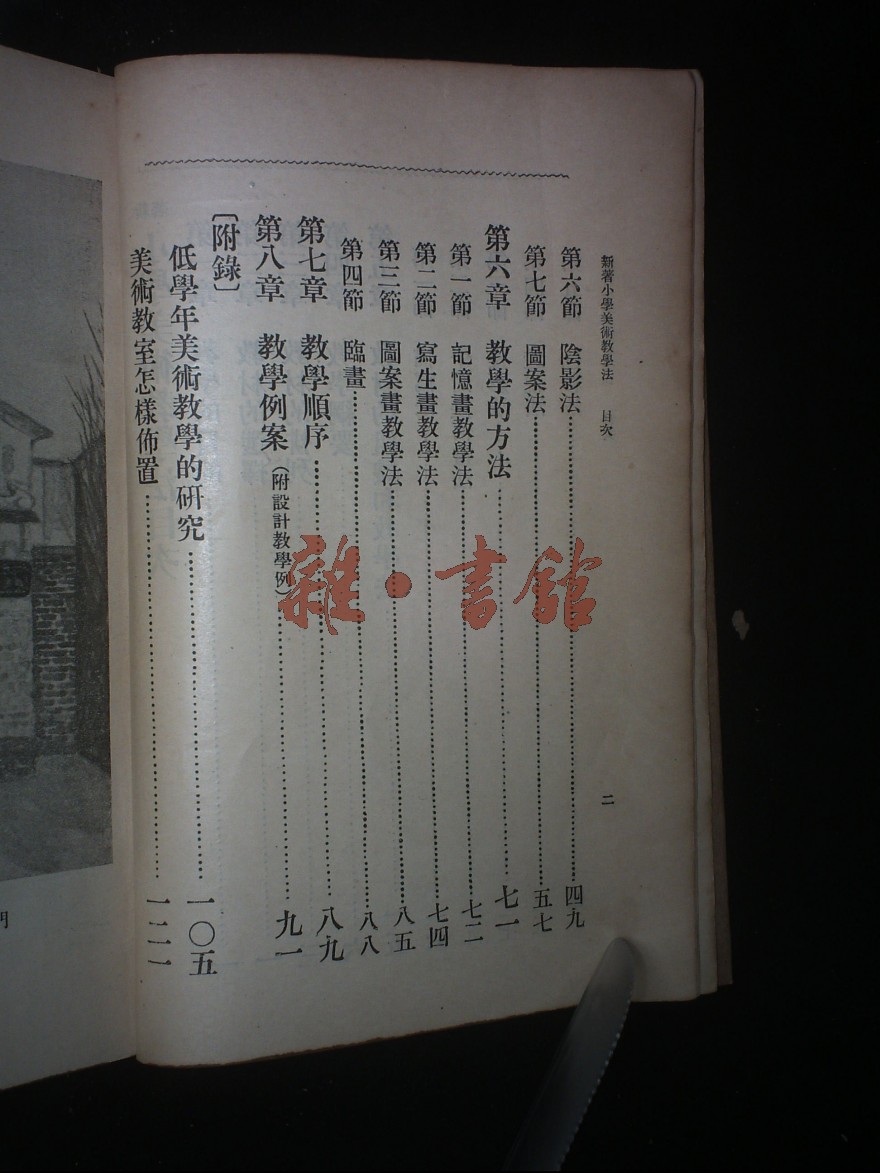 新著小學美術教學法 目次 二
第六節 陰影法 四九
第七節 圖案法 五七
第六章 教學的方法 七一
第一節 記憶畫教學法 七二
第二節 寫生畫教學法 七四
第三節 圖案畫教學法 八五
第四節 臨畫 八八
第七章 教學順序 八九
第八章 教學例案（附設計教學例） 九一
〔附錄〕
低學年美術教學的研究 一〇五
美術教室怎樣佈置
雜·書館